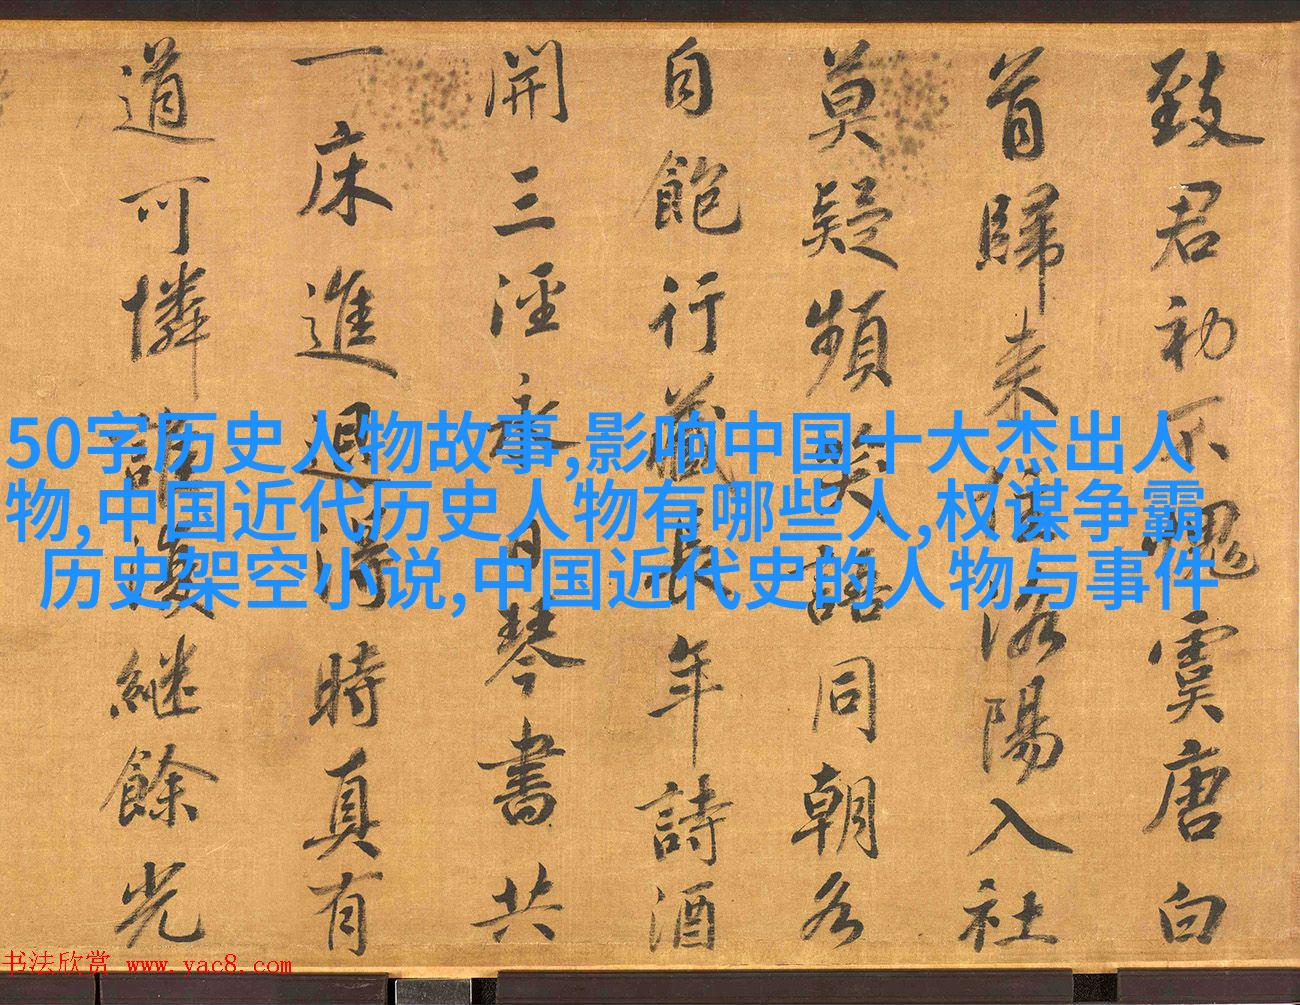 致君初不愧虞唐白
首歸来住洛陽入社
莫疑頻笑語同朝各
自飽行藏長年詩酒
開三逕永日琴書共
一床進退得時真有
道可憐誰復繼餘光
50字历史人物故事,影响中国十大杰出人
物,中国近代历史人物有哪些人,权谋争霸
历史架空小说,中国近代史的人物与事件
书法欣赏 www.yac8.com